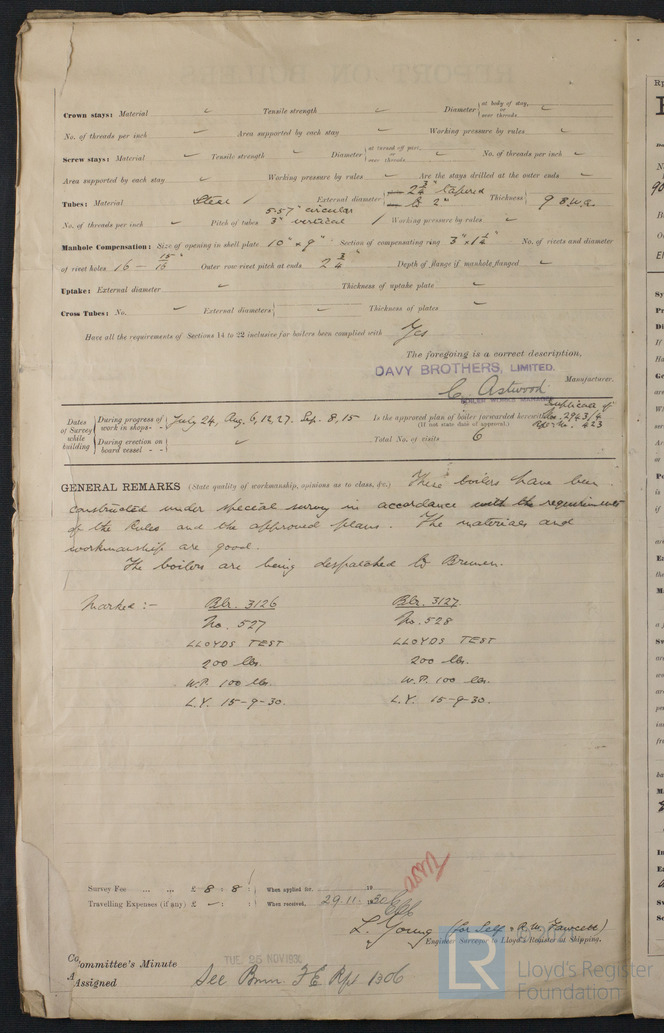 Crown stays: Material ✓ Tensile strength ✓ Diameter { at body of stay, or over threads. ✓
No. of threads per inch ✓ Area supported by each stay ✓ Working pressure by rules ✓
Screw stays: Material ✓ Tensile strength ✓ Diameter { at turned off part, or over threads. ✓ No. of threads per inch ✓
Area supported by each stay ✓ Working pressure by rules ✓ Are the stays drilled at the outer ends ✓
Tubes: Material Steel External diameter { 2 3/4" tapered to 2" Thickness 9 B.W.G.
No. of threads per inch ✓ Pitch of tubes 5.57" circular 3" vertical Working pressure by rules ✓
Manhole Compensation: Size of opening in shell plate 10" x 9" Section of compensating ring 3" x 1 1/4" No. of rivets and diameter
of rivet holes 16 - 15/16" Outer row rivet pitch at ends 2 3/4" Depth of flange if manhole flanged ✓
Uptake: External diameter ✓ Thickness of uptake plate ✓
Cross Tubes: No. ✓ External diameters { ✓ Thickness of plates ✓
Have all the requirements of Sections 14 to 22 inclusive for boilers been complied with Yes
The foregoing is a correct description,
DAVY BROTHERS, LIMITED.
C. Astwood Manufacturer.
BOILER WORKS MANAGER
Dates of Survey while building { During progress of work in shops - - July 24, Aug. 6, 12, 27. Sep. 8, 15 Is the approved plan of boiler forwarded herewith
(If not state date of approval.) 2943/4 423
During erection on board vessel - - ✓ Total No. of visits 6
GENERAL REMARKS (State quality of workmanship, opinions as to class, &c.) These boilers have been
constructed under special survey in accordance with the requirements
of the Rules and the approved plans. The materials and
workmanship are good.
The boilers are being despatched to Bremen.
Marked :- Blr. 3126 Blr. 3127
No. 527 No. 528
LLOYDS TEST LLOYDS TEST
200 lbs. 200 lbs.
W.P. 100 lbs. W.P. 100 lbs.
L.Y. 15-9-30. L.Y. 15-9-30.
Survey Fee ... ... £ 8 : 8 : When applied for, 19
Travelling Expenses (if any) £ - : : When received, 29.11. 1930
L. Young (for Self & R.W. Fawcett)
Engineer Surveyor to Lloyd's Register of Shipping.
Committee's Minute TUE. 25 NOV 1930
Assigned See Bmn F.E. Rpt 1306
LR Lloyd's Register Foundation